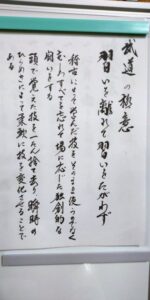 武道の極意
習いを離れて習いをたがわず
稽古によって学んだ技をそのまま使うのでなく
むしろすべてを忘れて場に応じた独創的な
闘いをする
頭で覚えた技を一たん捨て去り瞬時の
ひらめきによって柔軟に技を変化させることで
ある